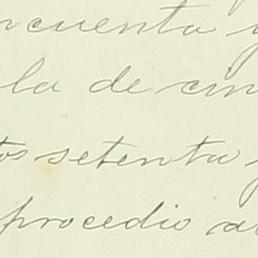 ncuenta y
la de cin
tos setenta y
procedio a